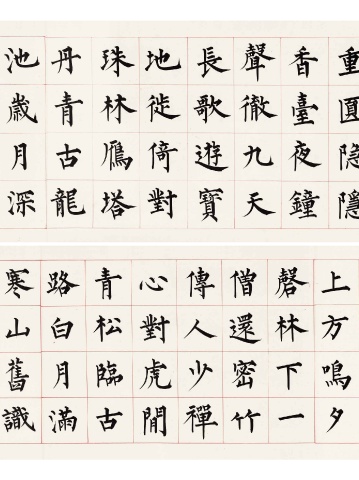 重圓隐隱
香臺夜鐘
聲徹九天
長歌遊寶
地徙倚對
珠林鴈塔
丹青古龍
池歲月深
上方鳴夕
磬林下一
僧還密竹
傳人少禪
心對虎閒
青松臨古
路白月滿
寒山舊識